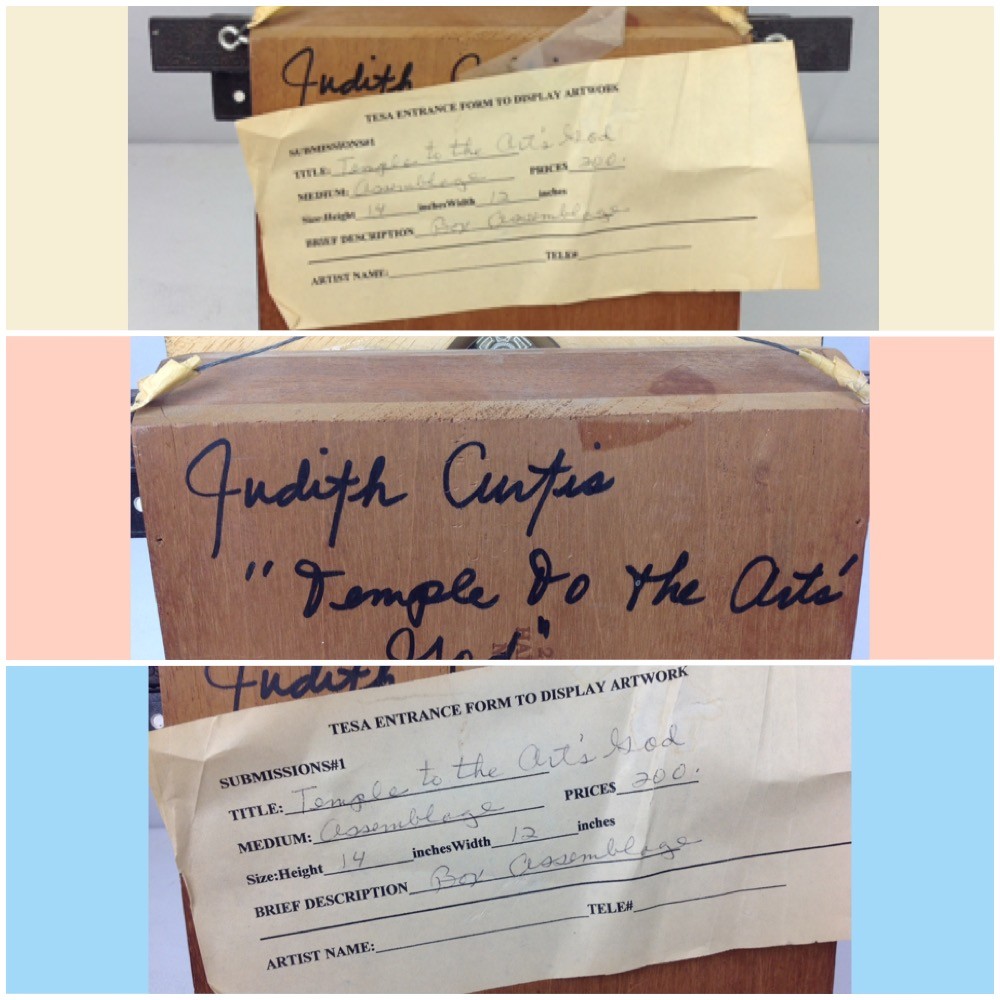 Judith
TESA ENTRANCE FORM TO DISPLAY ARTWORK
SUBMISSIONS#1
TITLE: Temple to the Art's God
MEDIUM: Assemblage PRICE$ 200.
Size:Height 14 inchesWidth 12 inches
BRIEF DESCRIPTION Box Assemblage
ARTIST NAME: TELE#
Judith Curtis
"Temple To The Arts'
God"
Judith
TESA ENTRANCE FORM TO DISPLAY ARTWORK
SUBMISSIONS#1
TITLE: Temple to the Art's God
MEDIUM: Assemblage PRICE$ 200.
Size:Height 14 inchesWidth 12 inches
BRIEF DESCRIPTION Box Assemblage
ARTIST NAME: TELE#